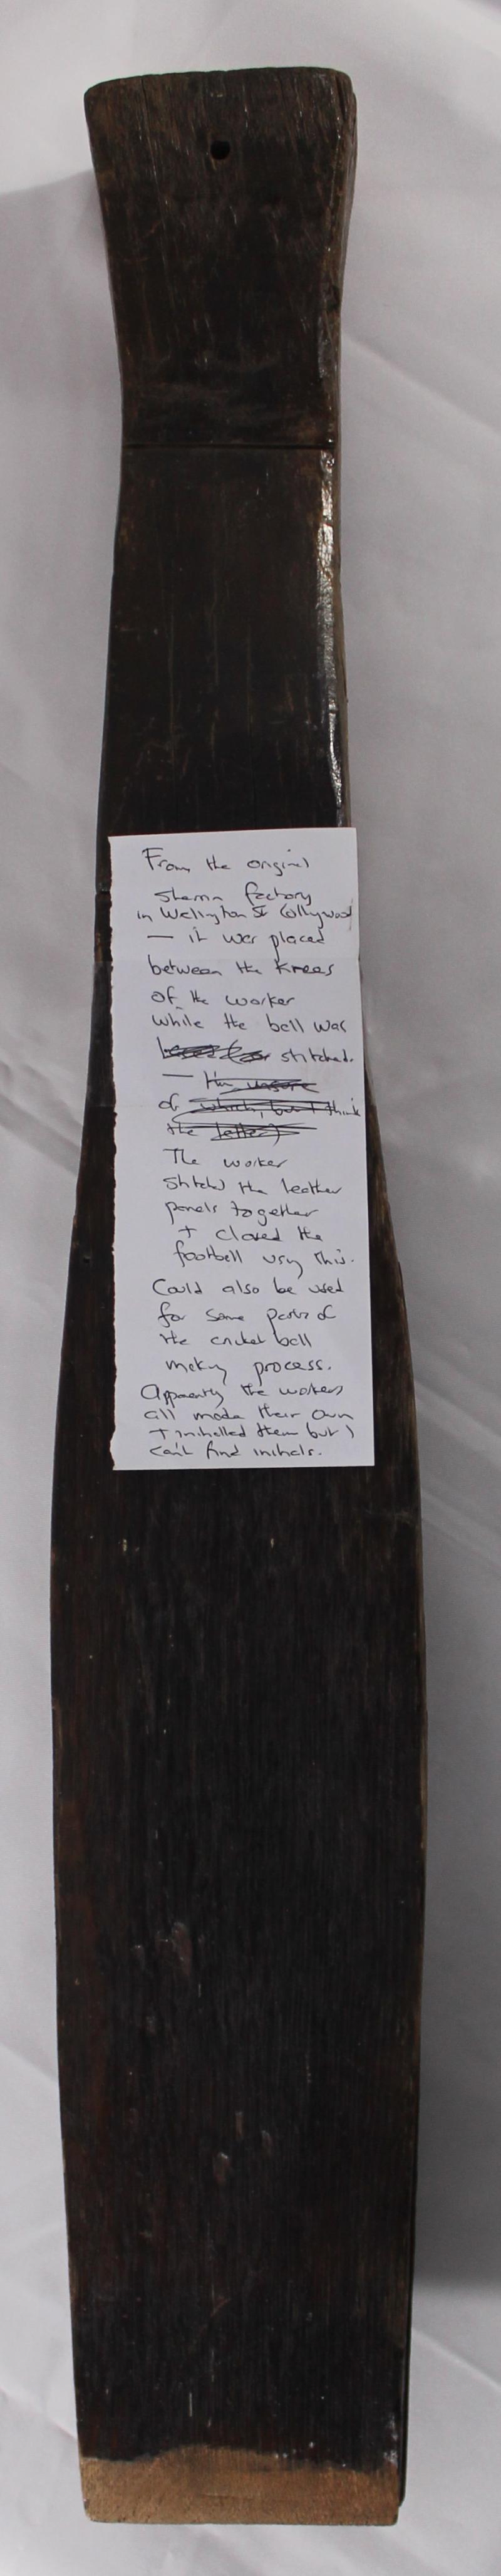 From the original
Sherrin factory
in Wellington St Collingwood
— it was placed
between the knees
of the worker
while the ball was
stitched.
—
of which, but I think
the latter)
The worker
stitched the leather
panels together
+ closed the
football using this.
Could also be used
for some parts of
the cricket ball
making process.
Apparently the workers
all made their own
+ initialled them but I
can't find initials.